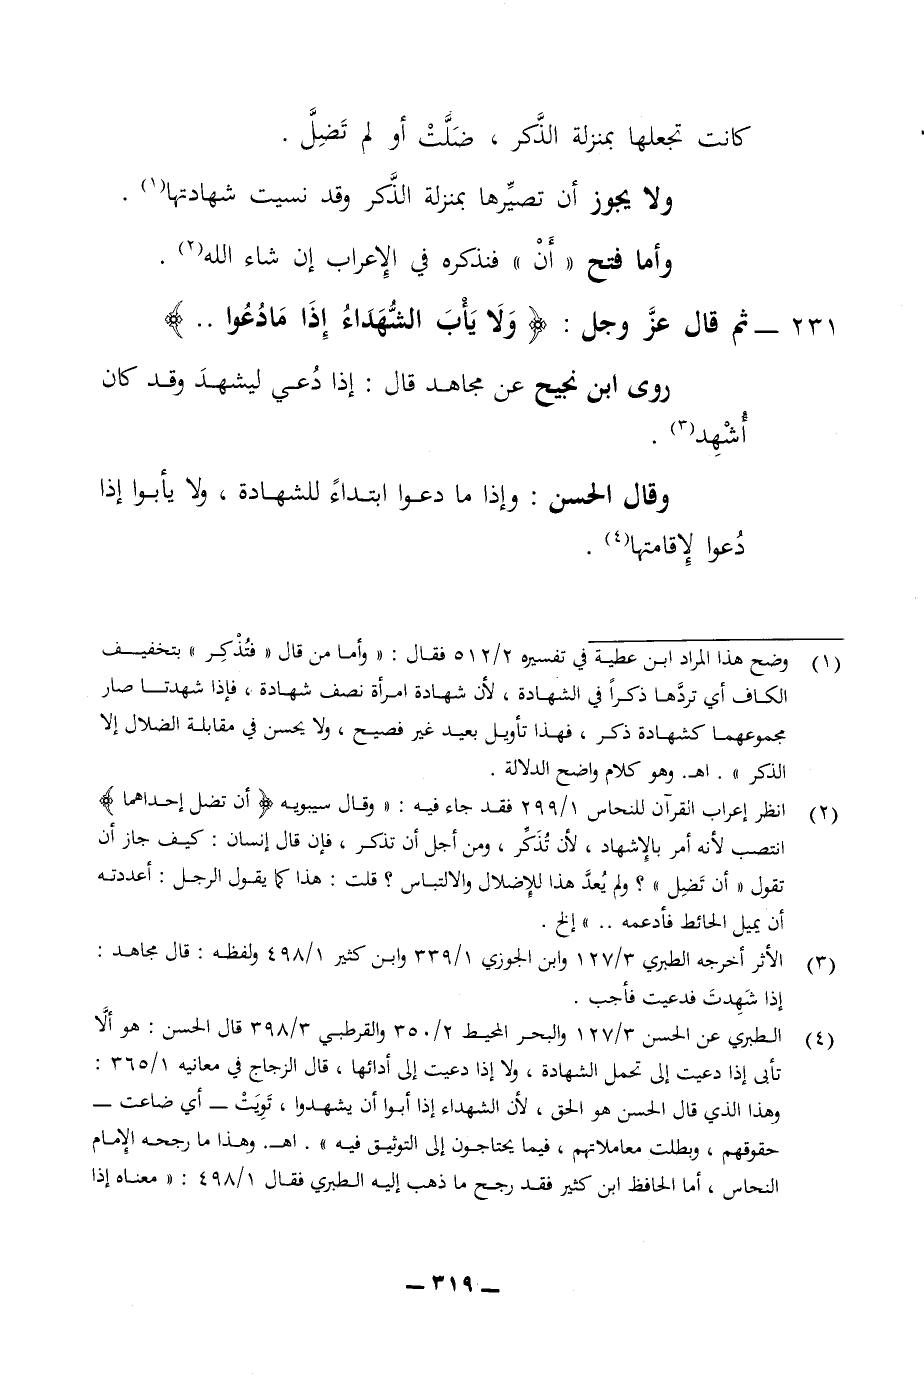 كانت تجعلها بمنزلة الذَّكر ، ضَلَّتْ أو لم تَضِلَّ .
ولا يجوز أن تصيِّرها بمنزلة الذَّكر وقد نسيت شهادتها(١) .
وأما فتح « أَنْ » فنذكره في الإعراب إن شاء الله(٢) .
٢٣١ ــ ثم قال عزَّ وجل : ﴿ وَلَا يَأْبَ الشُّهَدَاءُ إِذَا مَادُعُوا .. ﴾
روى ابن نجيح عن مجاهد قال : إذا دُعي ليشهدَ وقد كان
أُشْهِد(٣) .
وقال الحسن : وإذا ما دعوا ابتداءً للشهادة ، ولا يأبوا إذا
دُعوا لإقامتها(٤) .
(١) وضح هذا المراد ابن عطية في تفسيره ٥١٢/٢ فقال : « وأما من قال « فتُذْكِر » بتخفيف
الكاف أي تردَّها ذكراً في الشهادة ، لأن شهادة امرأة نصف شهادة ، فإذا شهدتا صار
مجموعهما كشهادة ذكر ، فهذا تأويل بعيد غير فصيح ، ولا يحسن في مقابلة الضلال إلا
الذكر » . اهـ. وهو كلام واضح الدلالة .
(٢) انظر إعراب القرآن للنحاس ٢٩٩/١ فقد جاء فيه : « وقال سيبويه ﴿ أن تضل إحداهما ﴾
انتصب لأنه أمر بالإشهاد ، لأن تُذَكِّر ، ومن أجل أن تذكر ، فإن قال إنسان : كيف جاز أن
تقول « أن تَضِل » ؟ ولم يُعدَّ هذا للإضلال والالتباس ؟ قلت : هذا كما يقول الرجل : أعددته
أن يميل الحائط فأدعمه .. » إلخ .
(٣) الأثر أخرجه الطبري ١٢٧/٣ وابن الجوزي ٣٣٩/١ وابن كثير ٤٩٨/١ ولفظه : قال مجاهد :
إذا شَهِدتَ فدعيت فأجب .
(٤) الطبري عن الحسن ١٢٧/٣ والبحر المحيط ٣٥٠/٢ والقرطبي ٣٩٨/٣ قال الحسن : هو ألَّا
تأبى إذا دعيت إلى تحمل الشهادة ، ولا إذا دعيت إلى أدائها ، قال الزجاج في معانيه ٣٦٥/١ :
وهذا الذي قال الحسن هو الحق ، لأن الشهداء إذا أبوا أن يشهدوا ، تَوِيَتْ ــ أي ضاعت ــ
حقوقهم ، وبطلت معاملاتهم ، فيما يحتاجون إلى التوثيق فيه » . اهـ. وهذا ما رجحه الإمام
النحاس ، أما الحافظ ابن كثير فقد رجح ما ذهب إليه الطبري فقال ٤٩٨/١ : « معناه إذا
ــ ٣١٩ ــ